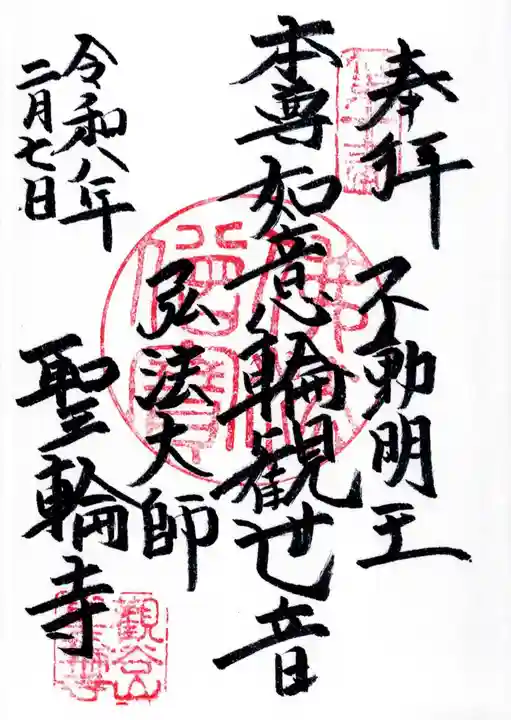 奉拝
不動明王
本尊如意輪観世音
弘法大師
令和八年
二月七日
聖輪寺